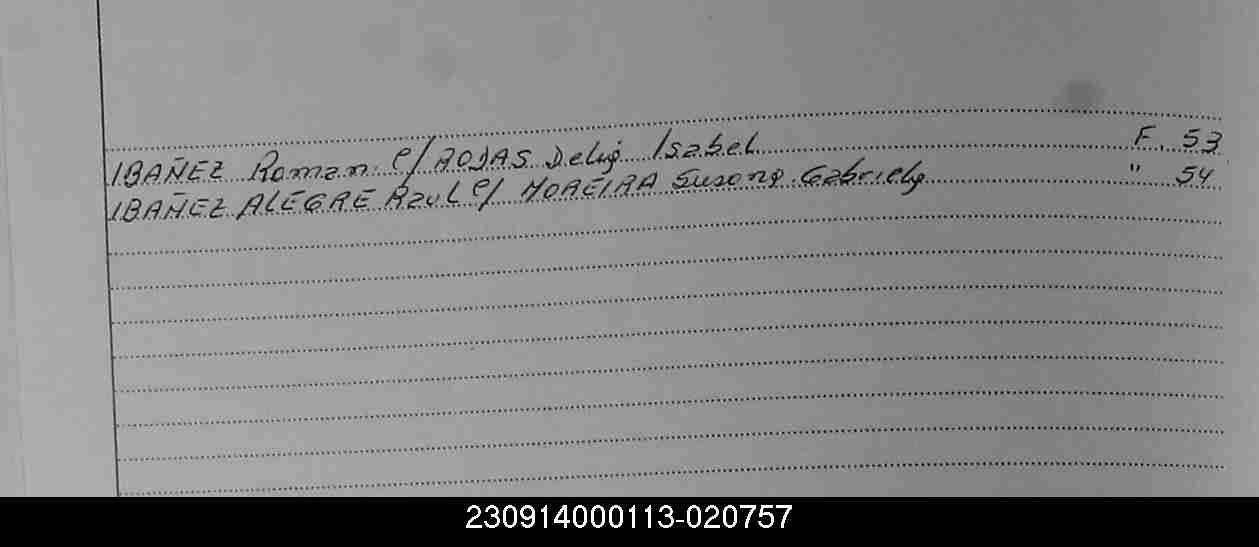 IBAÑEZ Roman c/ ROJAS Delia Isabel F. 53
IBAÑEZ ALEGRE Raul c/ MOREIRA Susana Gabriela " 54
230914000113-020757